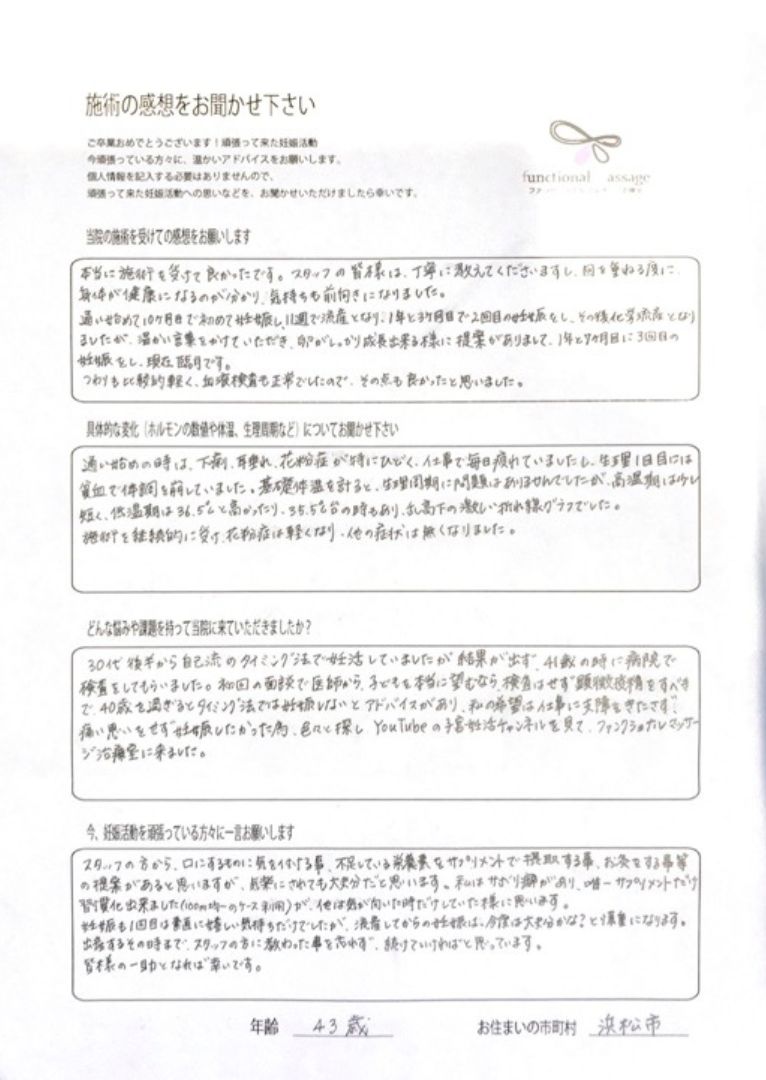 施術の感想をお聞かせ下さい
ご卒業おめでとうございます！頑張って来た妊娠活動
今頑張っている方々に、温かいアドバイスをお願いします。
個人情報を記入する必要はありませんので、
頑張って来た妊娠活動への思いなどを、お聞かせいただけましたら幸いです。
functional assage
当院の施術を受けての感想をお願いします
本当に施術を受けて良かったです。スタッフの皆様は、丁寧に教えてくださいますし、回を重ねる度に、
身体が健康になるのが分かり、気持ちも前向きになりました。
通い始めて10ヶ月目で初めて妊娠し、11週で流産となり、1年と3ヶ月目で2回目の妊娠をし、その後化学流産となり
ましたが、温かい言葉をかけていただき、卵がしっかり成長出来る様に提案がありまして、1年と9ヶ月目に3回目の
妊娠をし、現在臨月です。
つわりも比較的軽く、血液検査も正常でしたので、その点も良かったと思いました。
具体的な変化（ホルモンの数値や体温、生理周期など）についてお聞かせ下さい
通い始めの時は、下痢、耳垂れ、花粉症が特にひどく、仕事で毎日疲れていましたし、生理1日目には
貧血で体調を崩していました。基礎体温を計ると、生理周期に問題はありませんでしたが、高温期は少し
短く、低温期は36.5℃と高かったり、35.5℃台の時もあり、乱高下の激しい折れ線グラフでした。
施術を継続的に受け、花粉症は軽くなり、他の症状は無くなりました。
どんな悩みや課題を持って当院に来ていただきましたか？
30代後半から自己流のタイミング法で妊活していましたが結果が出ず、41歳の時に病院で
検査をしてもらいました。初回の面談で医師から、子どもを本当に望むなら、検査はせず顕微授精をすべき
で、40歳を過ぎるとタイミング法では妊娠しないとアドバイスがあり、私の希望は仕事に支障をきたさず、
痛い思いをせず妊娠したかった為、色々と探し YouTubeの子宮妊活チャンネルを見て、ファンクショナルマッサー
ジ治療室に来ました。
今、妊娠活動を頑張っている方々に一言お願いします
スタッフの方から、口にするものに気を付ける事、不足している栄養素をサプリメントで摂取する事、お灸をする事等
の提案があると思いますが、気楽にされても大丈夫だと思います。私はサボり癖があり、唯一サプリメントだけ
習慣化出来ました(100均のケース利用)が、他は気が向いた時だけしていた様に思います。
妊娠も1回目は素直に嬉しい気持ちだけでしたが、流産してからの妊娠は、今度は大丈夫かな？と慎重になります。
出産するその時まで、スタッフの方に教わった事を忘れず、続けていければと思っています。
皆様の一助となれば幸いです。
年齢 43歳 お住まいの市町村 浜松市